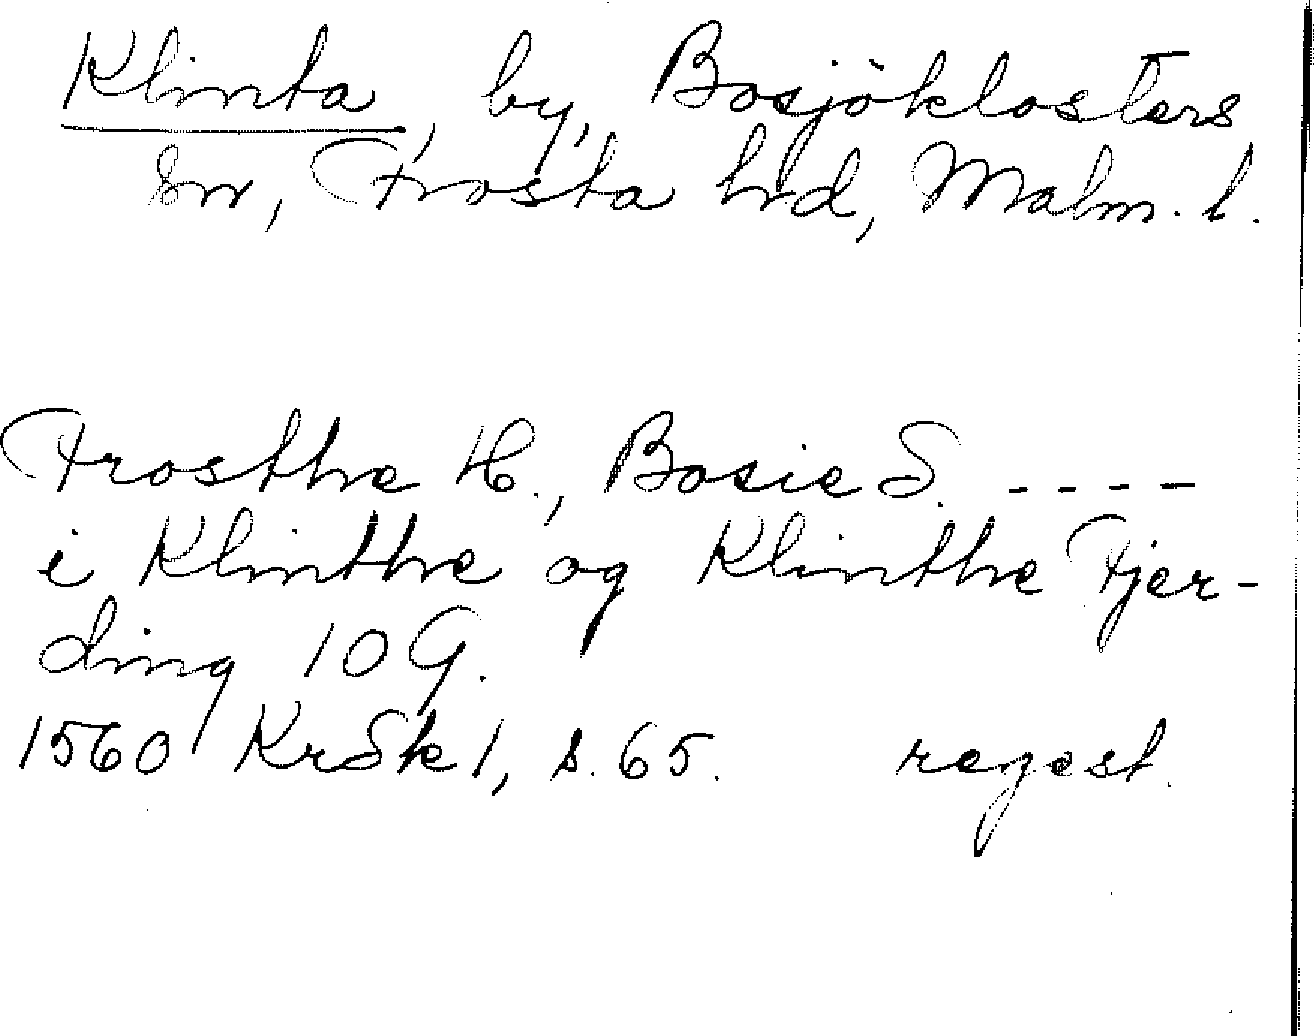 Klinta, by, Bosjöklosters
sn, Frosta hd, Malm. l.
Frosthe H., Bosie S. ----
i Klinthe og Klinthe Fjer-
ding 10 G.
1560 KrSk 1, s. 65. regest.